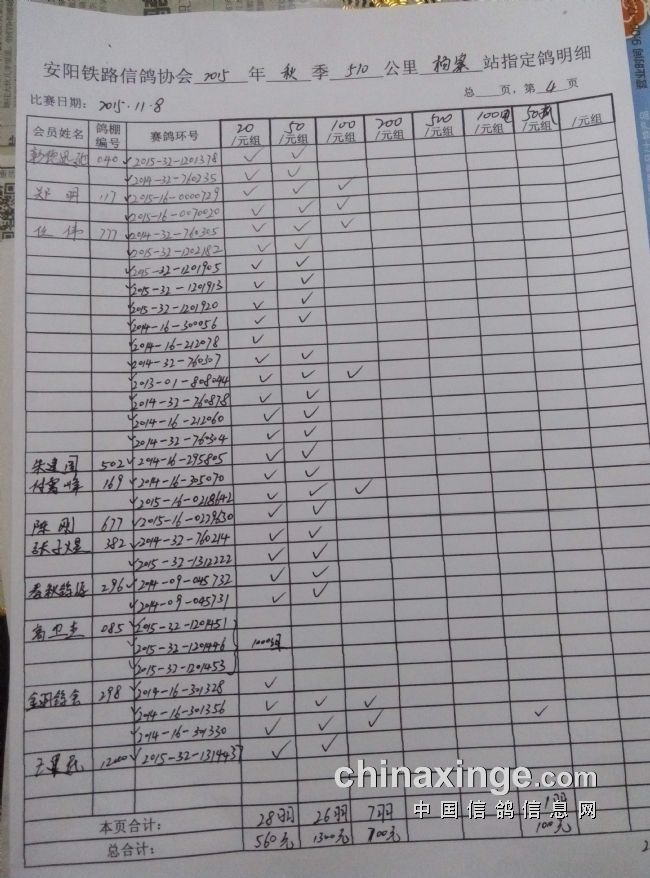 安阳铁路信鸽协会 2015 年 秋 季 510 公里 站指定鸽明细
比赛日期: 2015.11.8 总 页, 第 4 页
会员姓名 鸽棚编号 赛鸽环号 20/元组 50/元组 100/元组 200/元组 500/元组 /元组 /元组 /元组
040 ✓2015-32-1201378 ✓ ✓
✓2014-32-760235 ✓ ✓
郑明 117 ✓2015-16-0000729 ✓ ✓ ✓
✓2015-16-0070020 ✓ ✓ ✓
伟 777 ✓2014-32-760305 ✓ ✓ ✓
✓2015-32-1202182 ✓ ✓
✓2015-32-1201905 ✓ ✓
✓2015-32-1201913 ✓ ✓
✓2015-32-1201920 ✓ ✓
✓2014-16-300056 ✓ ✓
✓2014-16-212078 ✓
✓2014-32-760307 ✓ ✓
✓2013-01-808044 ✓ ✓ ✓
✓2014-32-760878 ✓ ✓
✓2014-16-212060 ✓ ✓
✓2014-32-760304 ✓ ✓
朱建国 502 ✓2014-16-295805 ✓ ✓
付雪峰 169 ✓2014-16-305070 ✓ ✓
✓2015-16-0218642 ✓ ✓ ✓
陈刚 677 ✓2015-16-0229630 ✓ ✓
张子煜 382 ✓2014-32-760214 ✓ ✓
✓2015-32-1312222 ✓ ✓
296 ✓2014-09-045732 ✓ ✓
✓2014-09-045731 ✓ ✓
高卫 085 ✓2015-32-1201451
✓2015-32-1201446
✓2015-32-1201453
298 ✓2014-16-301328 ✓
✓2014-16-301356 ✓ ✓ ✓ ✓
✓2014-16-301330 ✓ ✓ ✓
✓2015-32-1314437 ✓ ✓
本页合计: 28羽 26羽 7羽 1羽
总合计: 560元 1300元 700元 100元
chinaxinge.com
中国信鸽信息网